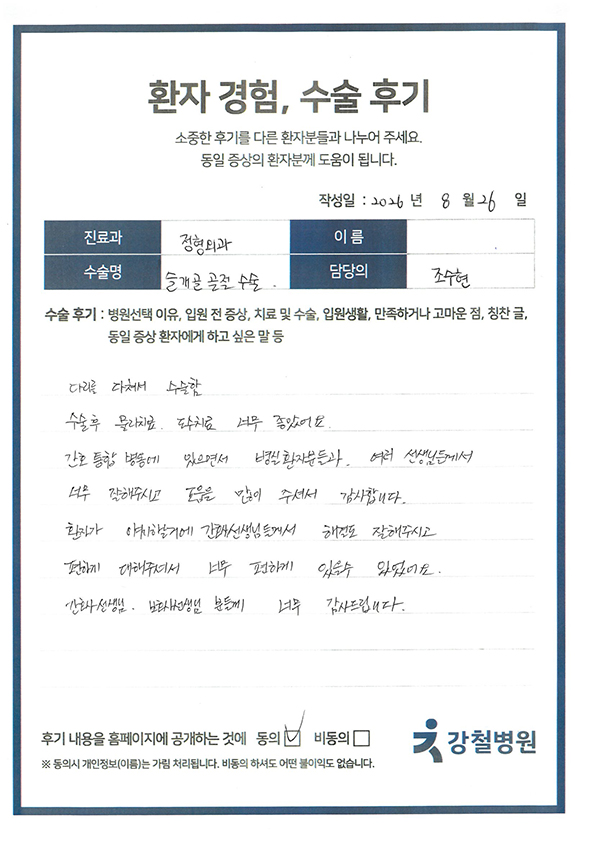 환자 경험, 수술 후기
소중한 후기를 다른 환자분들과 나누어 주세요.
동일 증상의 환자분께 도움이 됩니다.
작성일 : 2026 년 8 월 26 일
진료과 정형외과 이 름
수술명 슬개골 골절 수술. 담당의 조수현
수술 후기 : 병원선택 이유, 입원 전 증상, 치료 및 수술, 입원생활, 만족하거나 고마운 점, 칭찬 글,
동일 증상 환자에게 하고 싶은 말 등
다리를 다쳐서 수술함
수술후 물리치료. 도수치료 너무 좋았어요.
간호 통합 병동에 있으면서 병실환자분들과. 여러 선생님들께서
너무 잘해주시고 도움을 많이 주셔서 감사합니다.
환자가 간호사선생님들께서 잘해주시고
편하게 대해주셔서 너무 편하게 있을수 있었어요.
간호사선생님. 분들께 너무 감사드립니다.
후기 내용을 홈페이지에 공개하는 것에 동의 비동의
강철병원
※ 동의시 개인정보(이름)는 가림 처리됩니다. 비동의 하셔도 어떤 불이익도 없습니다.